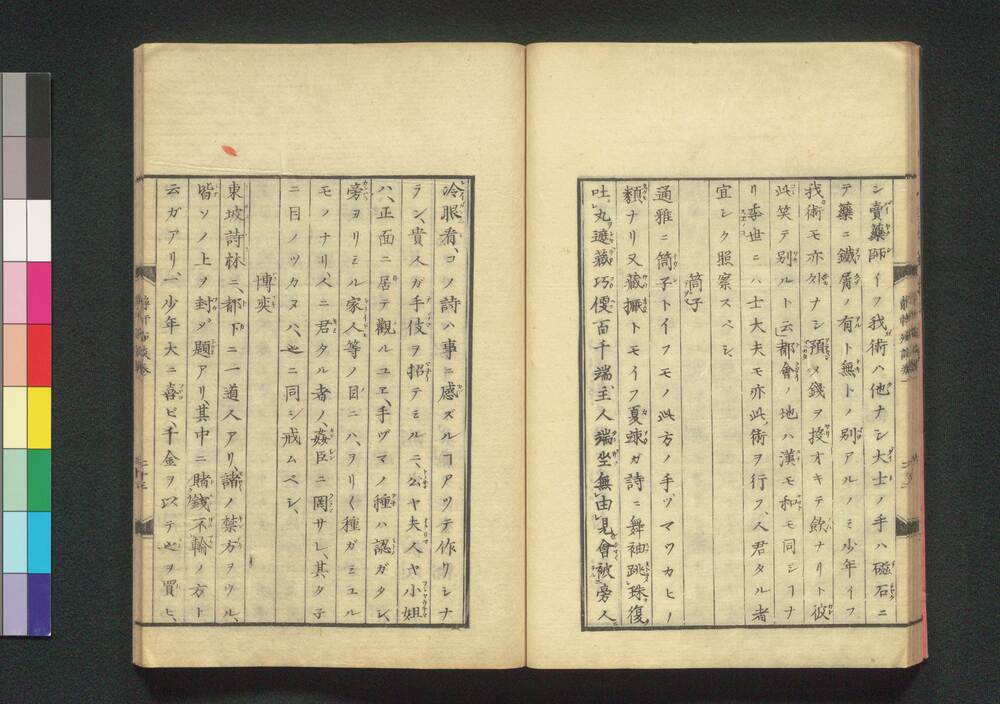 シ賣藥師イフ我術ハ他ナシ大士ノ手ハ磁石ニ
テ藥ニ鐵屑ノ有ト無トノ別アルノミ少年イフ
我術モ亦外ナシ預メ錢ヲ投オキテ飲ナリト彼
此笑テ別ルト云都會ノ地ハ漢モ和モ同シコナ
リ季世ニハ士大夫モ亦此術ヲ行フ、人君タル者
宜シク照察スベシ
筒子
通雅ニ筒子トイフモノ此方ノ手ヅマツカヒノ
類ナリ又藏擫トモイフ夏竦ガ詩ニ舞袖跳珠復
吐丸遮藏巧便百千端主人端坐無由見會被旁人
冷眼看、コノ詩ハ事ニ感ズルコアツテ作リシナ
ラン、貴人ガ手伎ヲ招テミルニ、公ヤ夫人ヤ小姐
ハ、正面ニ居テ觀ルユエ、手ヅマノ種ハ認ガタシ、
旁ヨリミル家人等ノ目ニハ、ヲリ〱種ガミユル
モノナリ、人ニ君タル者ノ姦臣ニ罔サレ、其タ子
ニ目ノツカヌハ、也ニ同シ戒ムベシ、
博奕
東坡詩林ニ、都下ニ一道人アリ、諸ノ禁方ヲウル、
皆ソノ上ヲ封ジ題アリ、其中ニ賭錢不輸ノ方ト
云ガアリ、一少年大ニ喜ビ、千金ヲ以テ之ヲ買ヒ、